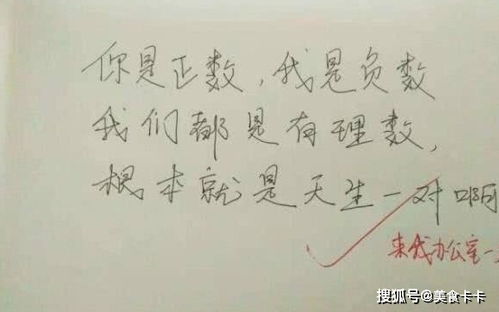 你是正数，我是负数
我们都是有理数，
根本就是天生一对啊
来我办公室一
搜狐号@美食卡卡